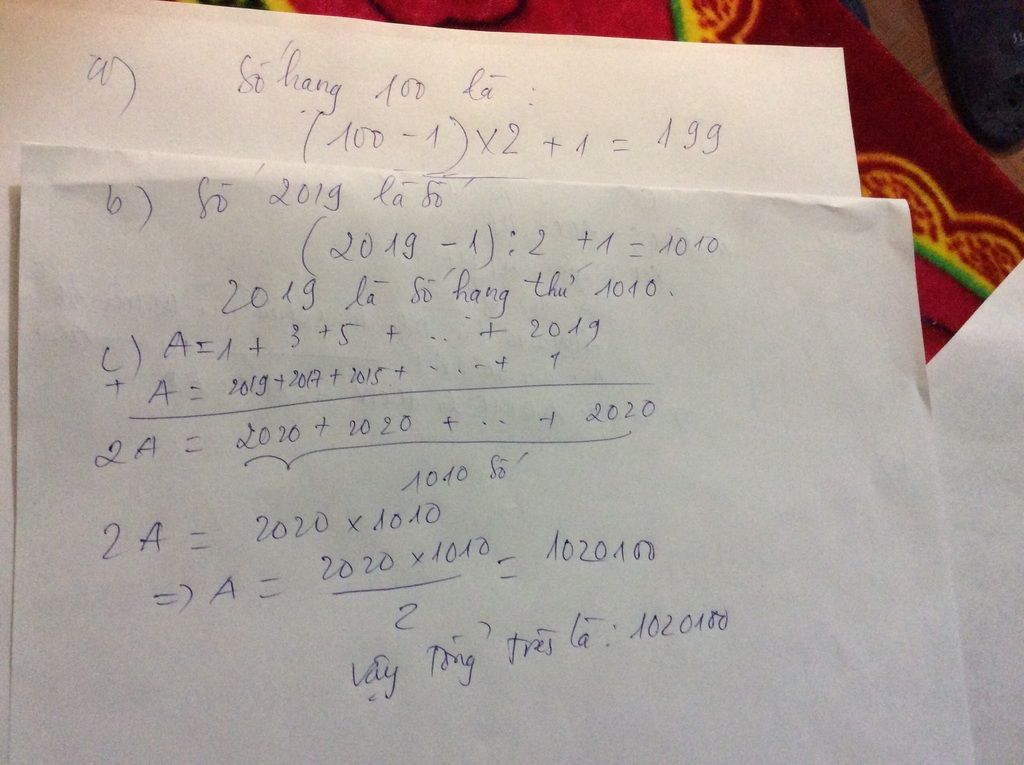 a) Số hạng 100 là :
(100 - 1) x 2 + 1 = 199
b) Số 2019 là số
(2019 - 1) : 2 + 1 = 1010
2019 là số hạng thứ 1010.
c) A = 1 + 3 + 5 + ... + 2019
+ A = 2019 + 2017 + 2015 + ... + 1
2A = 2020 + 2020 + ... + 2020
1010 số
2A = 2020 x 1010
=> A = 2020 x 1010 / 2 = 1020100
Vậy tổng trên là : 1020100